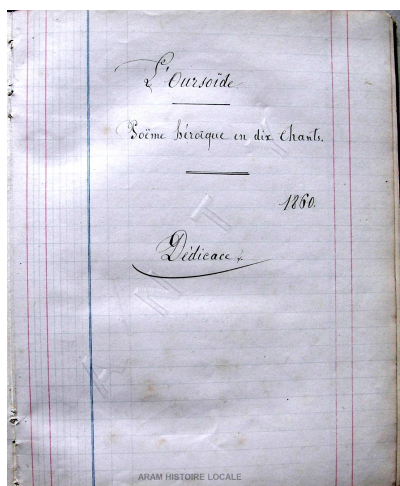 L'Oursoïde
Poëme héroïque en dix Chants.
1860.
Dédicace.
ARAM HISTOIRE LOCALE